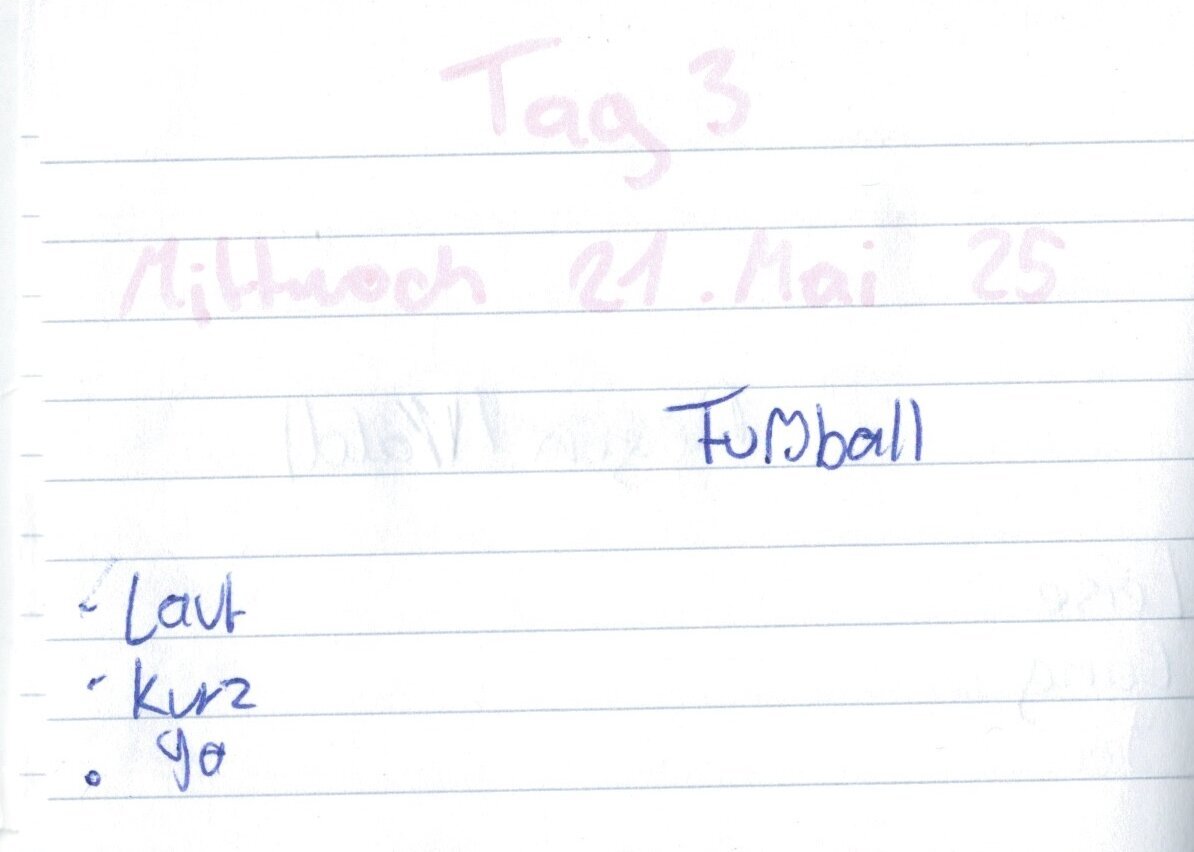 Tag 3
Mittwoch 21. Mai 25
Fußball
- Laut
- kurz